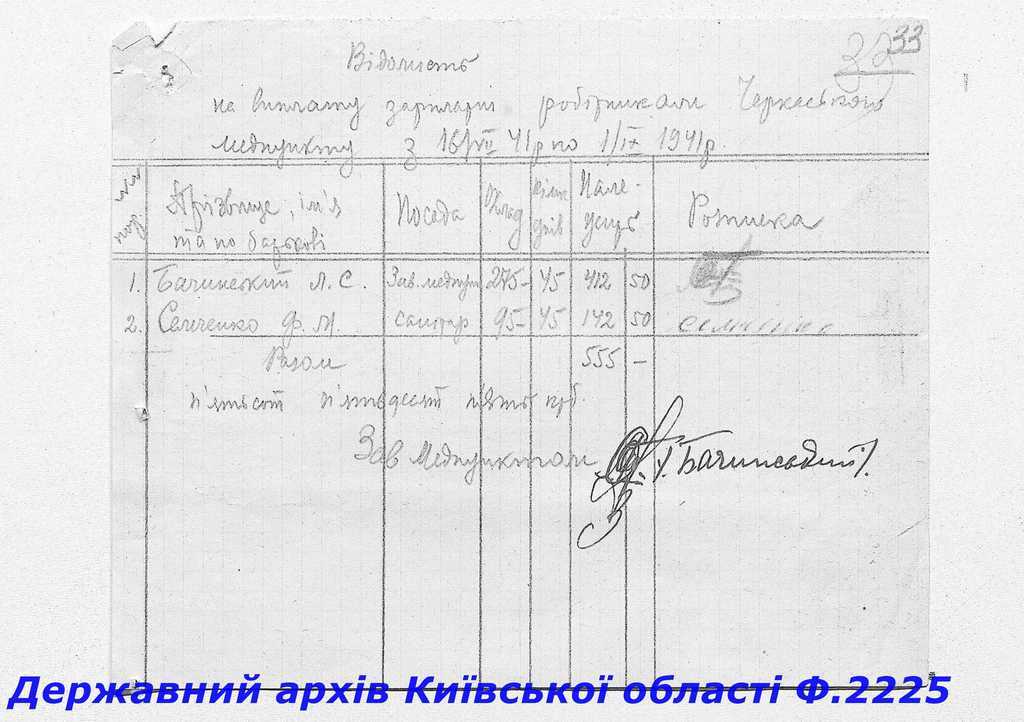 32 33
Відомість
на виплату зарплати робітникам Черкаського
медпункту з 16/VII 41 р по 1/IX 1941 р.
№№ пор | Прізвище, ім'я та по батькові | Посада | Оклад | Кільк днів | Нале-жить | Розписка
1. Бачинський Л. С. | Зав. медпун | 275- | 45 | 412 | 50
2. Семченко Ф. М. | санітар | 95- | 45 | 142 | 50 | семченко
Разом 555 —
п'ятьсот п'ятьдесят п'ять крб.
Зав Медпунктом /Бачинський/.
Державний архів Київської області Ф.2225